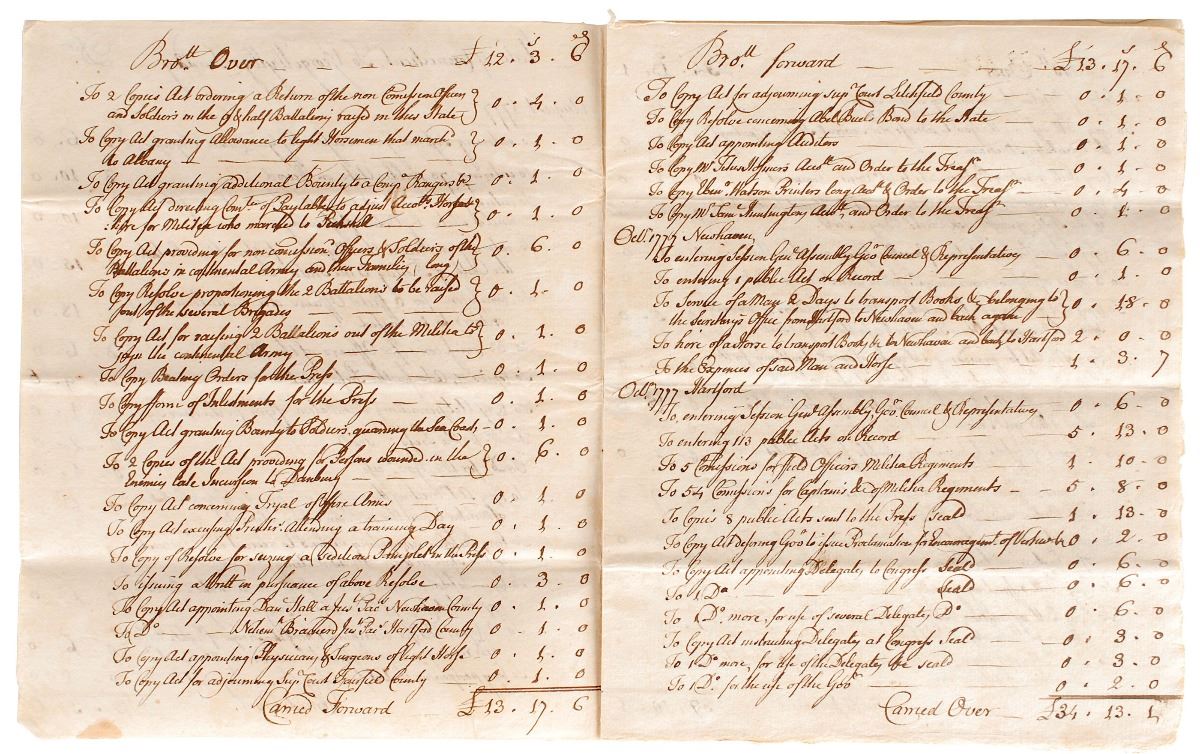 Bro.tt Over £12 . 3 . 6
To 2 Copies Act ordering a Return of the non Comission Officers
and Soldiers in the 8 & half Battalions raised in this State 0 . 4 . 0
To Copy Act granting Allowance to light Horsemen that march.d
to Albany 0 . 1 . 0
To Copy Act granting additional Bounty to a Comp.y Rangers &c 0 . 1 . 0
To Copy Act directing Com.te of Paytable to adjust Acco.ts Horses
hire for Militia who marched to Peekskill 0 . 1 . 0
To Copy Act providing for non comission.d Officers & Soldiers of the
Battalions in continental Army and their Families, (long) 0 . 6 . 0
To Copy Resolve proportioning the 2 Battalions to be raised
out of the several Brigades 0 . 1 . 0
To Copy Act for raising 2 Battalions out of the Militia to
join the continental Army 0 . 1 . 0
To Copy Beating Orders for the Press 0 . 1 . 0
To Copy fforms of Inlistments for the Press 0 . 1 . 0
To Copy Act granting Bounty to Soldiers guarding the Sea Coast, 0 . 1 . 0
To 2 Copies of the Act providing for Persons wounded in the
Enemies late Incursion to Danbury 0 . 6 . 0
To Copy Act concerning Tryal of ffire Arms 0 . 1 . 0
To Copy Act excusing Attending a training Day 0 . 1 . 0
To Copy of Resolve for seizing a Seditious Pamphlet in the Press 0 . 1 . 0
To Issuing a Writt in pursuance of above Resolve 0 . 3 . 0
To Copy Act appointing Dan.l Hall a Jus.t Pac.s Newhaven County 0 . 1 . 0
To D.o Nehem.h Brainerd Jus.t Pac.s Hartford County 0 . 1 . 0
To Copy Act appointing Physicians & Surgeons of light Horse 0 . 1 . 0
To Copy Act for adjourning Sup.r Court Fairfield County 0 . 1 . 0
Carried Forward £13 . 17 . 6
Bro.tt forward £13 . 17 . 6
To Copy Act for adjourning Sup.r Court Litchfield County 0 . 1 . 0
To Copy Resolve concerning Abel Buels Bond to the State 0 . 1 . 0
To Copy Act appointing Auditors 0 . 1 . 0
To Copy M.r Titus Hosmers Acco.tt and Order to the Treas.r 0 . 1 . 0
To Copy Eben.r Watson Printers long Aco.tt & Order to the Treas.r 0 . 4 . 0
To Copy M.r Sam.l Huntington Aco.tt, and Order to the Treas.r 0 . 1 . 0
Oct.r 1777 Newhaven
To entering Session Gen.l Assembly Gov.r Council & Representatives 0 . 6 . 0
To entering 1 public Act on Record 0 . 1 . 0
To Service of a Man 2 Days to transport Books &c belonging to
the Secretary's Office from Hartford to Newhaven and back again 0 . 18 . 0
To hire of a Horse to transport Books &c to Newhaven and back to Hartford 2 . 0 . 0
To the Expences of said Man and Horse 1 . 3 . 7
Oct.r 1777 Hartford
To entering Session Gen.l Assembly, Gov.r Council & Representatives 0 . 6 . 0
To entering 113 public Acts on Record 5 . 13 . 0
To 5 Comissions for field Officers Militia Regiments 1 . 10 . 0
To 54 Comissions for Captains &c of Militia Regiments 5 . 8 . 0
To Copies 8 public Acts sent to the Press Seald 1 . 13 . 0
To Copy Act desiring Gov.r to issue Proclamation for Encouragem.t of Vertue &c 0 . 2 . 0
To Copy Act appointing Delegates to Congress Seal 0 . 6 . 0
To 1 D.o Seald 0 . 6 . 0
To 1 D.o more, for use of several Delegates D.o 0 . 6 . 0
To Copy Act instructing Delegates at Congress Seald 0 . 3 . 0
To 1 D.o more, for use of the Delegates seald 0 . 3 . 0
To 1 D.o for the use of the Gov.r 0 . 2 . 0
Carried Over £34 . 13 . 1